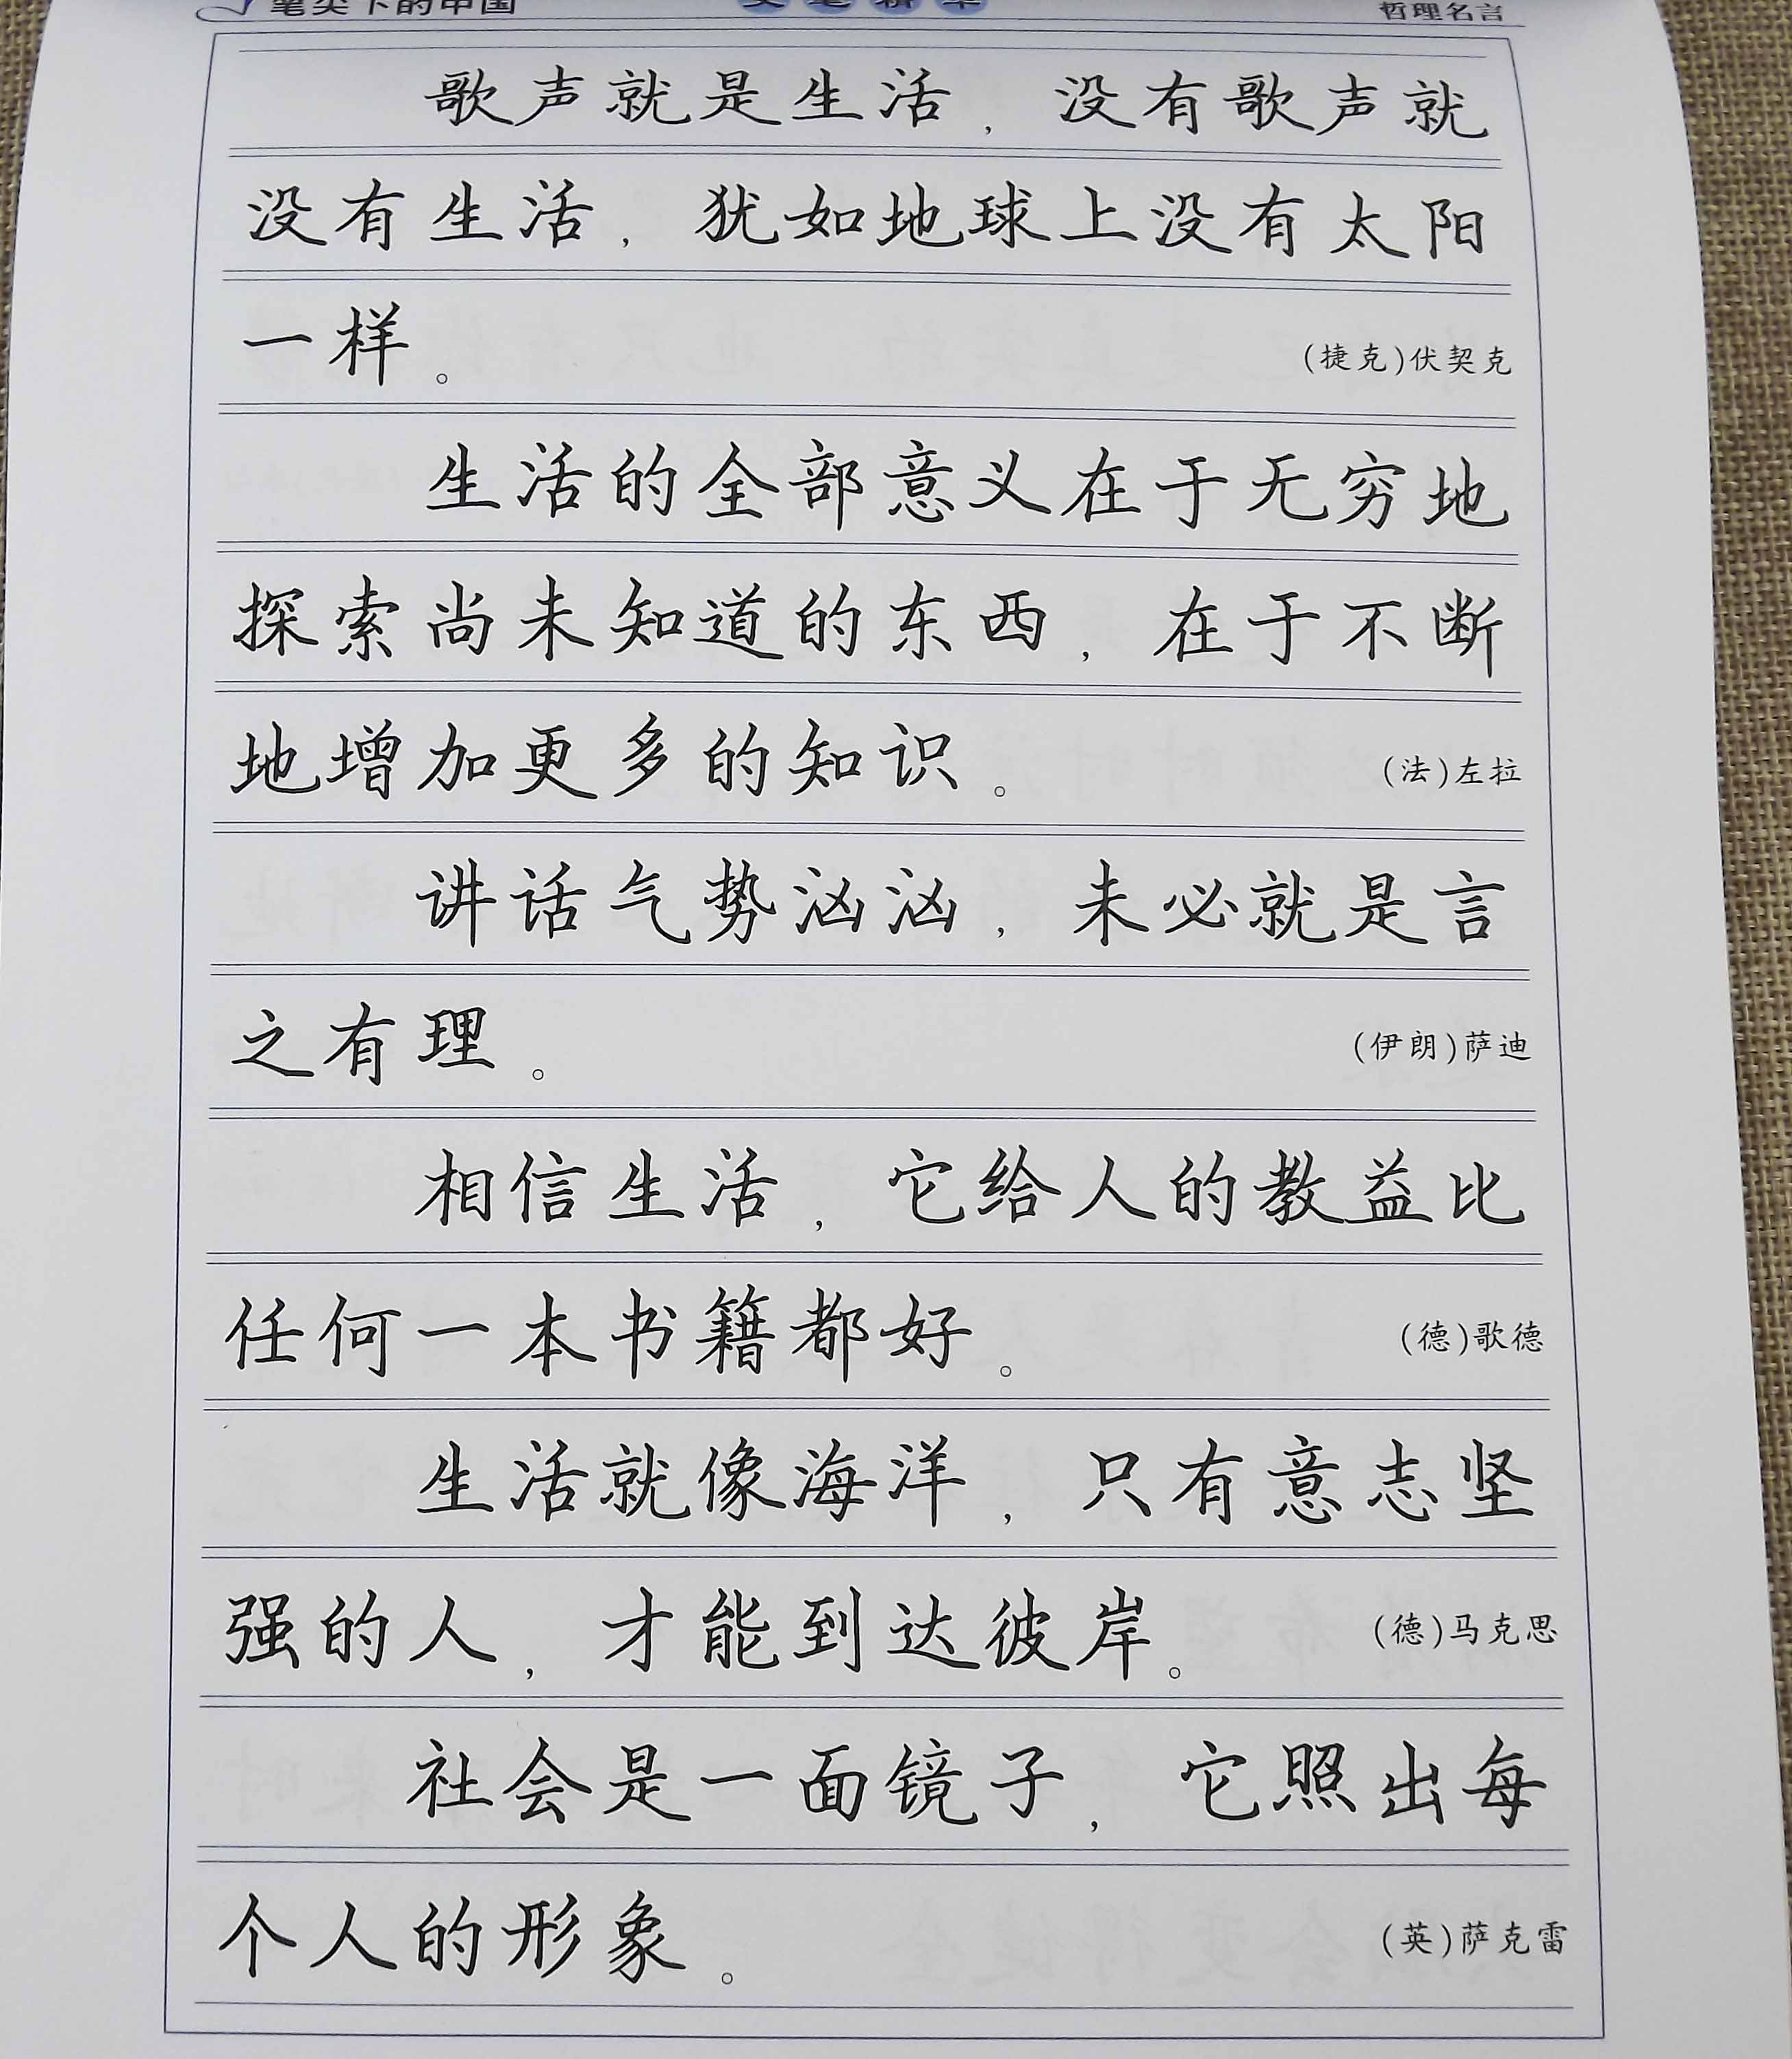 笔尖下的中国
哲理名言
歌声就是生活，没有歌声就
没有生活，犹如地球上没有太阳
一样。 (捷克)伏契克
生活的全部意义在于无穷地
探索尚未知道的东西，在于不断
地增加更多的知识。 (法)左拉
讲话气势汹汹，未必就是言
之有理。 (伊朗)萨迪
相信生活，它给人的教益比
任何一本书籍都好。 (德)歌德
生活就像海洋，只有意志坚
强的人，才能到达彼岸。 (德)马克思
社会是一面镜子，它照出每
个人的形象。 (英)萨克雷